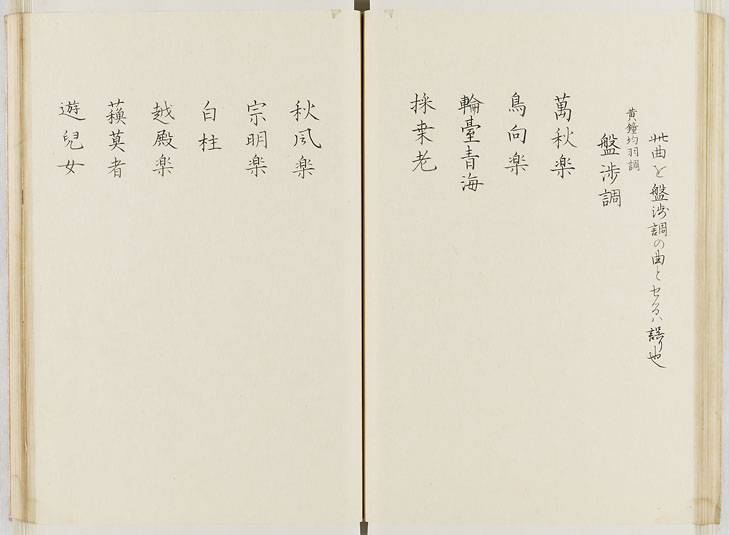 此曲を盤渉調の曲とセルハ誤り也
黄鐘均羽調
盤渉調
萬秋楽
鳥向楽
輪臺青海
採桒老
秋风楽
宗明楽
白柱
越殿楽
蘓莫者
遊兒女